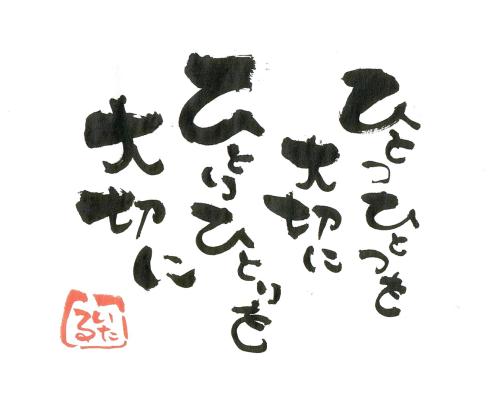 ひとつひとつを
大切に
ひとりひとりを
大切に
いた
る